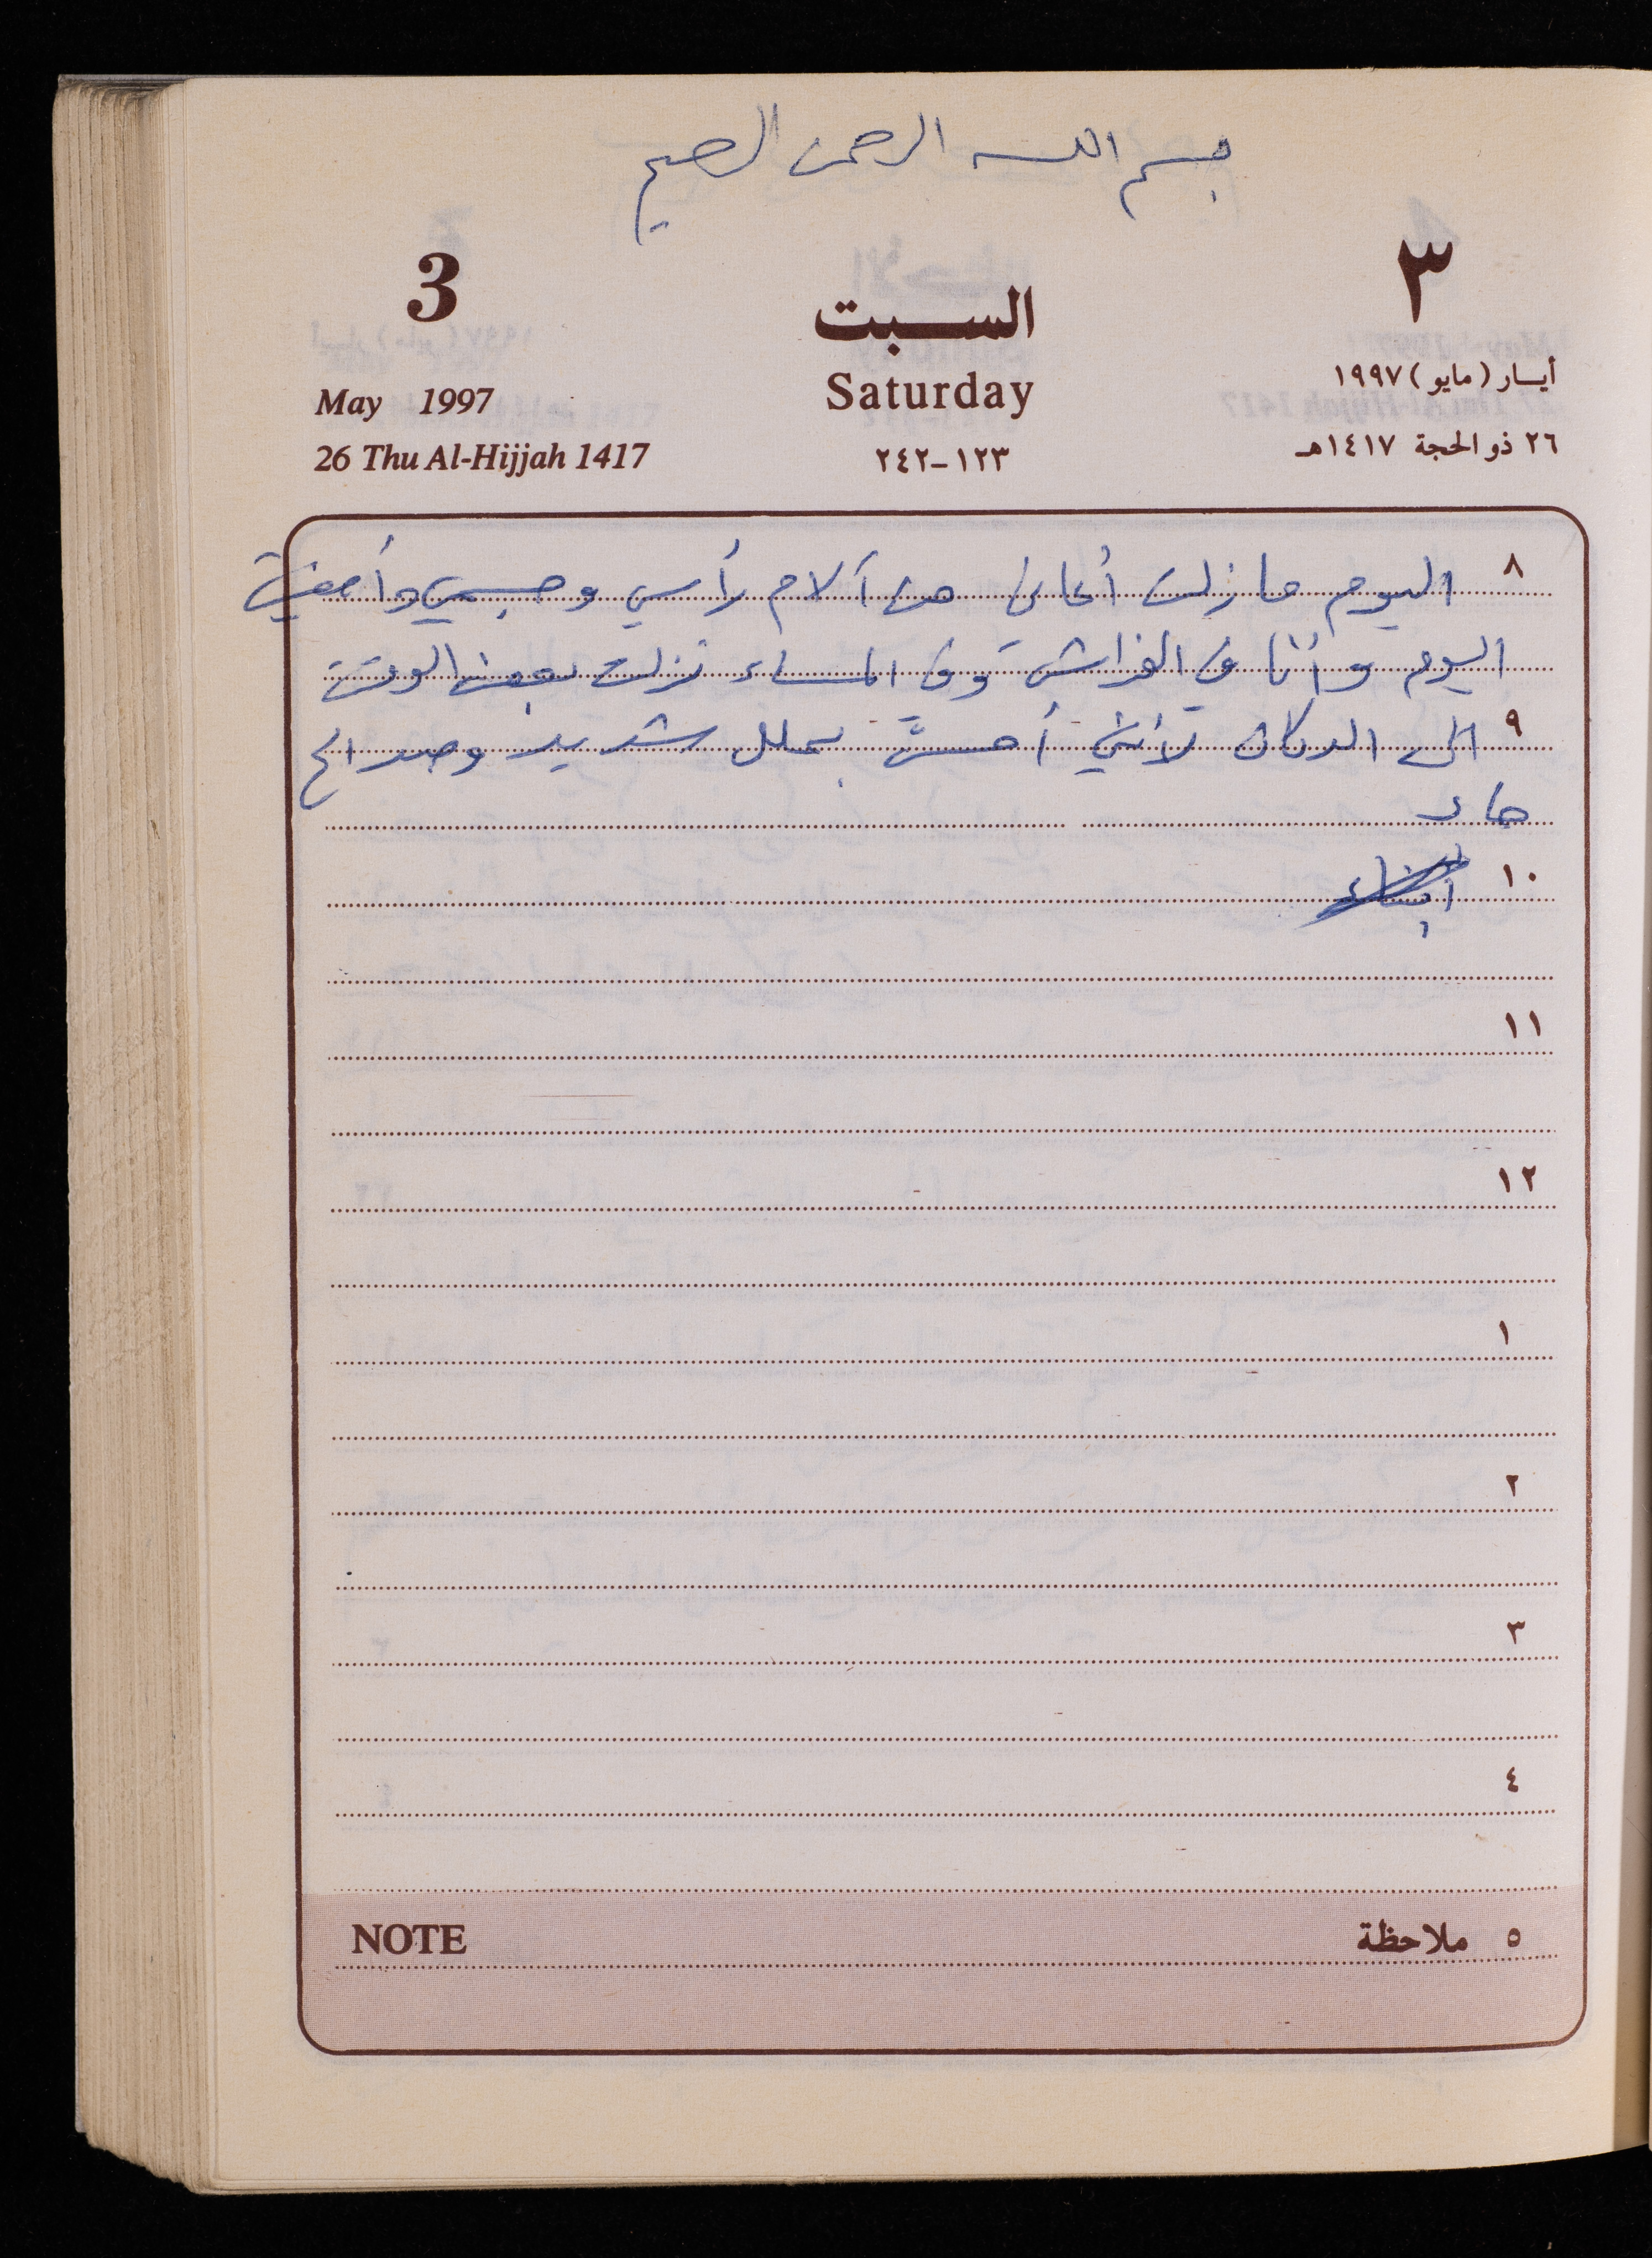 بسم الله الرحمن الرحيم
3 السبت ٣
May 1997 Saturday أيار (مايو) ١٩٩٧
26 Thu Al-Hijjah 1417 ١٢٣-٢٤٢ ٢٦ ذو الحجة ١٤١٧هـ
٨ اليوم ما زلت أعاني من آلام رأسي وجسمي وأمضيت
اليوم وأنا في الفراش وفي المساء نزلت بعض الوقت
٩ الى الدكان لأنني أحسَّ بملل شديد وصداع
حاد
١٠
١١
١٢
١
٢
٣
٤
NOTE ٥ ملاحظة